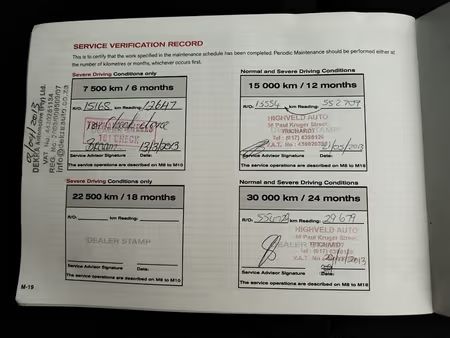 SERVICE VERIFICATION RECORD
This is to certify that the work specified in the maintenance schedule has been completed. Periodic Maintenance should be performed either at
the number of kilometres or months, whichever occurs first.
Severe Driving Conditions only
7 500 km / 6 months
R/O. 15165 km Reading: 12647
13/3/2013
Service Advisor Signature Date:
The service operations are described on M8 to M10
Normal and Severe Driving Conditions
15 000 km / 12 months
R/O. km Reading:
HIGHVELD AUTO
Paul Kruger Street
TRICHARDT
Service Advisor Signature Date:
The service operations are described on M8 to M10
Severe Driving Conditions only
22 500 km / 18 months
R/O. km Reading:
DEALER STAMP
Service Advisor Signature Date:
The service operations are described on M8 to M10
Normal and Severe Driving Conditions
30 000 km / 24 months
R/O. km Reading: 29679
HIGHVELD AUTO
Paul Kruger Street
Service Advisor Signature Date:
The service operations are described on M8 to M10
M-19
DEKRA Automotive (Pty) Ltd.